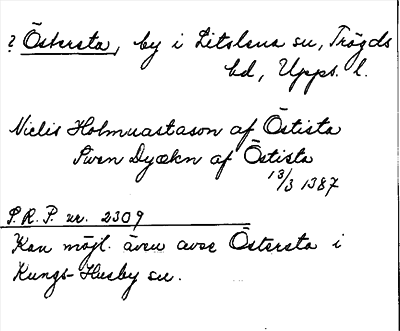 ? Östersta, by i Litslena sn, Trögds
bd, Upps. l.
Niclis Holmuastason af Östista
Swen Dyækn af Östista
13/3 1387
S.R.P. nr. 2309
Kan möjl. även avse Östersta i
Kungs-Husby sn.